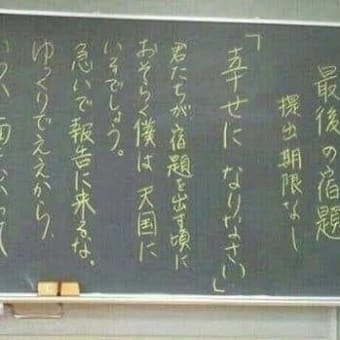 最後の宿題
提出期限なし
「幸せになりなさい」
君たちが宿題を出す頃に
おそらく僕は天国に
いるでしょう。
急いで報告に来るな。
ゆっくりでええから